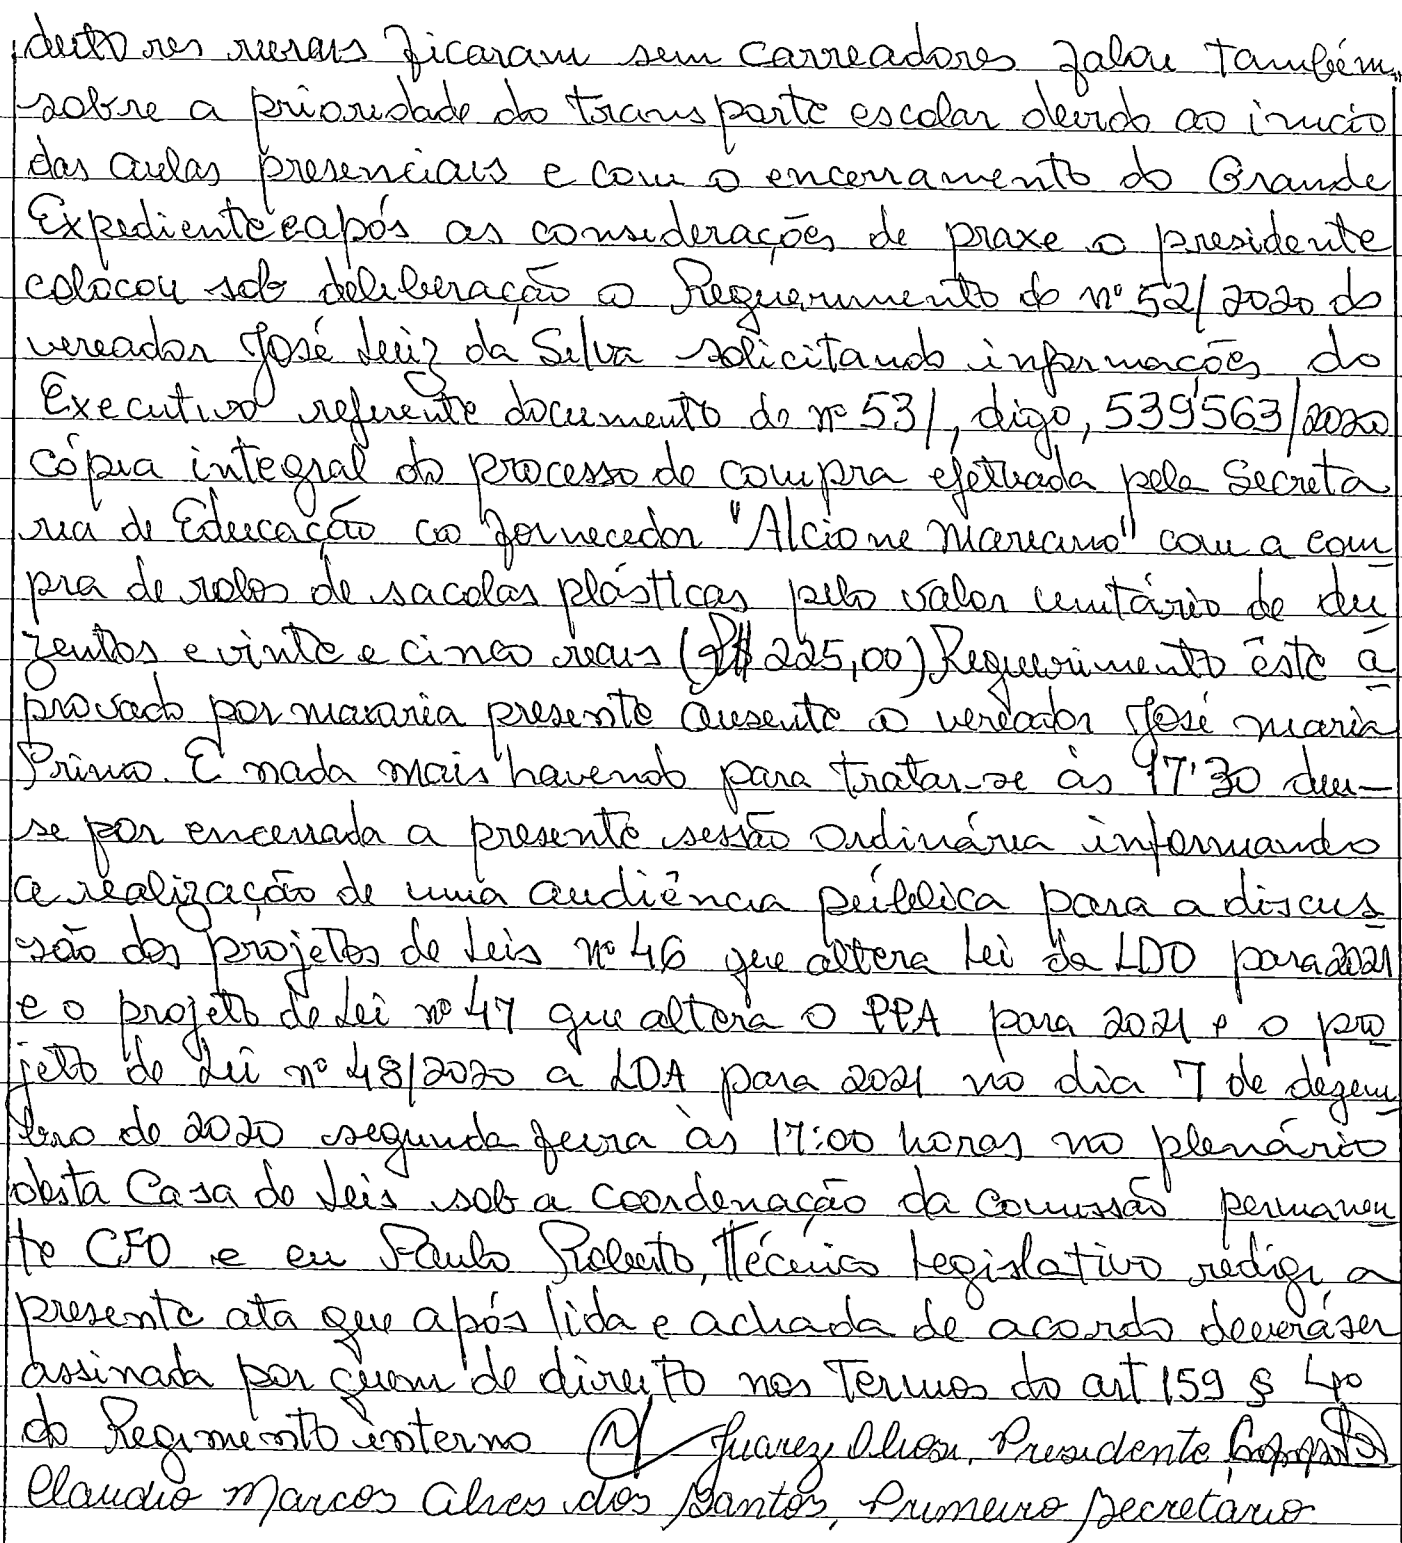 dutores rurais ficaram sem carreadores falou também
sobre a prioridade do transporte escolar devido ao inicio
das aulas presenciais e com o encerramento do Grande
Expediente e após as considerações de praxe o presidente
colocou sob deliberação o Requerimento de nº 52/2020 do
vereador José Luiz da Silva solicitando informações do
Executivo referente documento de nº 53/, digo, 539563/2020
cópia integral do processo de compra efetuada pela Secreta
ria de Educação ao fornecedor "Alcione Mareano" com a com
pra de rolos de sacolas plásticas pelo valor unitário de du
zentos e vinte e cinco reais (R$ 225,00) Requerimento êste a
provado por maioria presente ausente o vereador José Maria
Primo. E nada mais havendo para tratar-se às 17'30 deu-
se por encerrada a presente sessão Ordinária informando
a realização de uma audiência pública para a discus
são dos projetos de Leis nº 46 que altera Lei da LDO para 2021
e o projeto de Lei nº 47 que altera o PPA para 2021 e o pro
jeto de Lei nº 48/2020 a LOA para 2021 no dia 7 de dezem
bro de 2020 segunda feira às 17:00 horas no plenário
desta Casa de Leis sob a coordenação da comissão permanen
te CFO e eu Paulo Roberto, Técnico Legislativo redigi a
presente ata que após lida e achada de acordo deverá ser
assinada por quem de direito nos Termos do art 159 § 4º
do Regimento interno Juarez, Presidente
Claudio Marcos Alves dos Santos, Primeiro Secretario